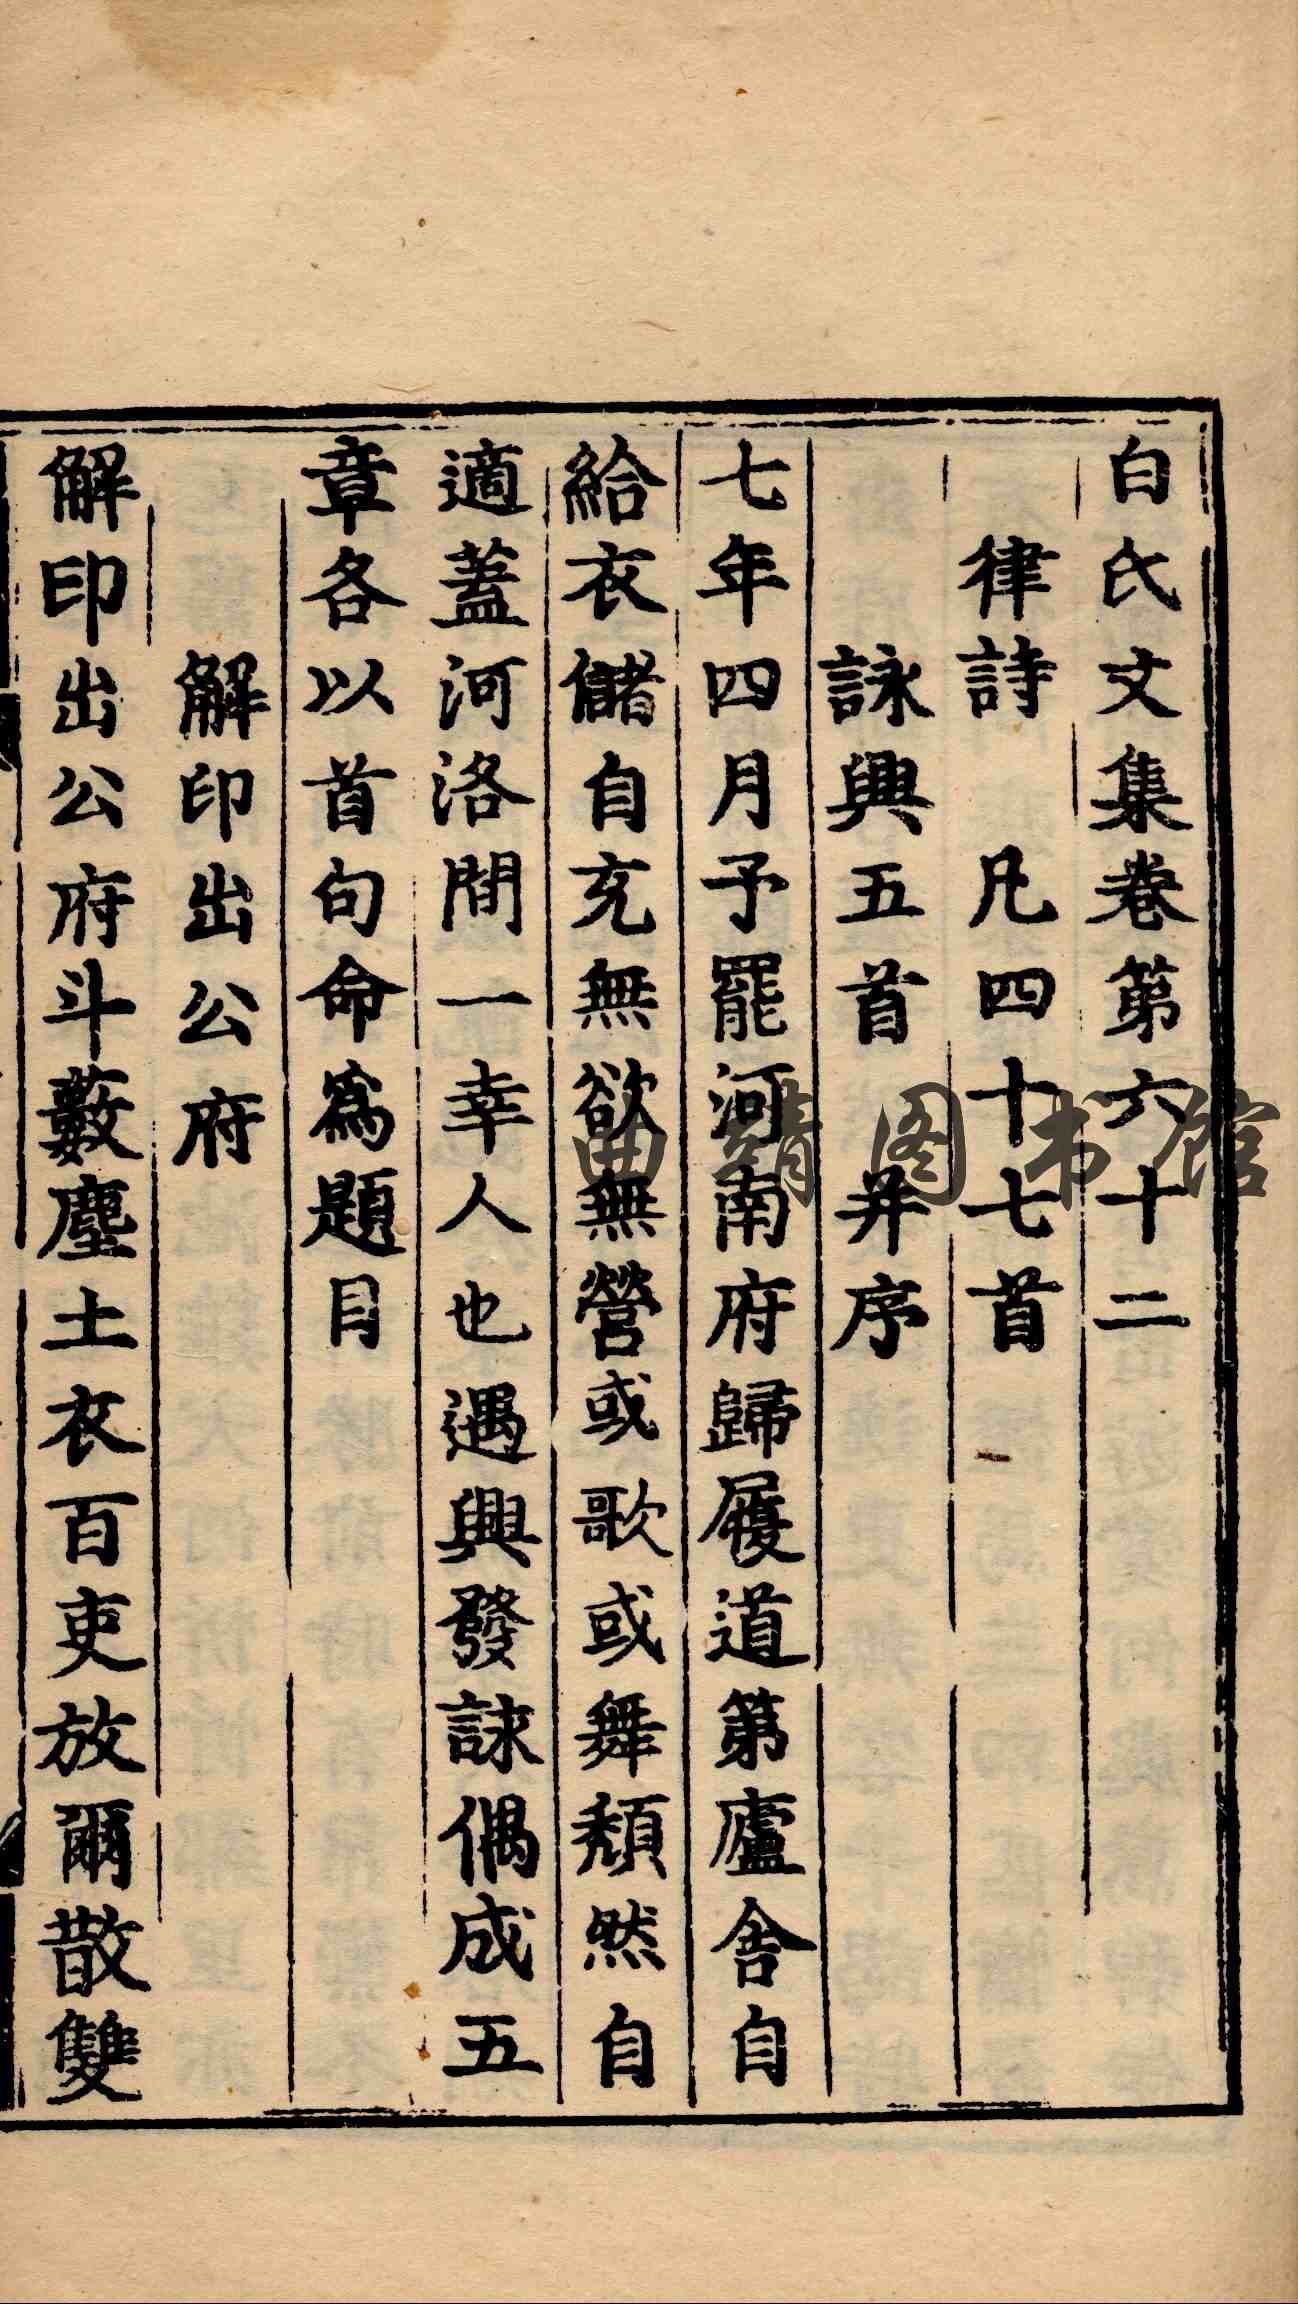 白氏文集卷第六十二
律詩 凡四十七首
詠興五首 并序
七年四月予罷河南府歸履道第廬舍自
給衣儲自充無欲無營或歌或舞頽然自
適蓋河洛間一幸人也遇興發詠偶成五
章各以首句命爲題目
解印出公府
解印出公府斗藪塵土衣百吏放爾散雙
曲靖图书馆